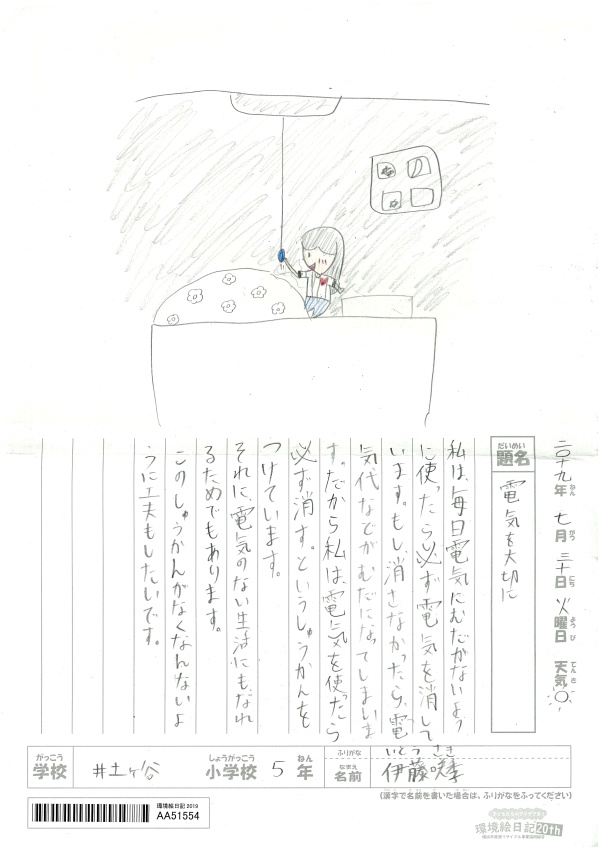 二〇十九年 七月 三十日 火曜日 天気
ねん がつ にち ようび てんき
だいめい
題名
電気を大切に
私は、毎日電気にむだがないよう
に使ったら必ず電気を消して
います。もし、消さなかったら、電
気代などがむだになってしまいま
す。だから私は、電気を使ったら
必ず消す。というしゅうかんを
つけています。
それに、電気のない生活にもなれ
るためでもあります。
このしゅうかんがなくなんないよ
うに工夫もしたいです。
がっこう
学校
井土ヶ谷
しょうがっこう
小学校
5
ねん
年
ふりがな
いとう さき
なまえ
名前
伊藤咲季
(漢字で名前を書いた場合は、ふりがなをふってください)
環境絵日記 2019
AA51554
環境絵日記20th